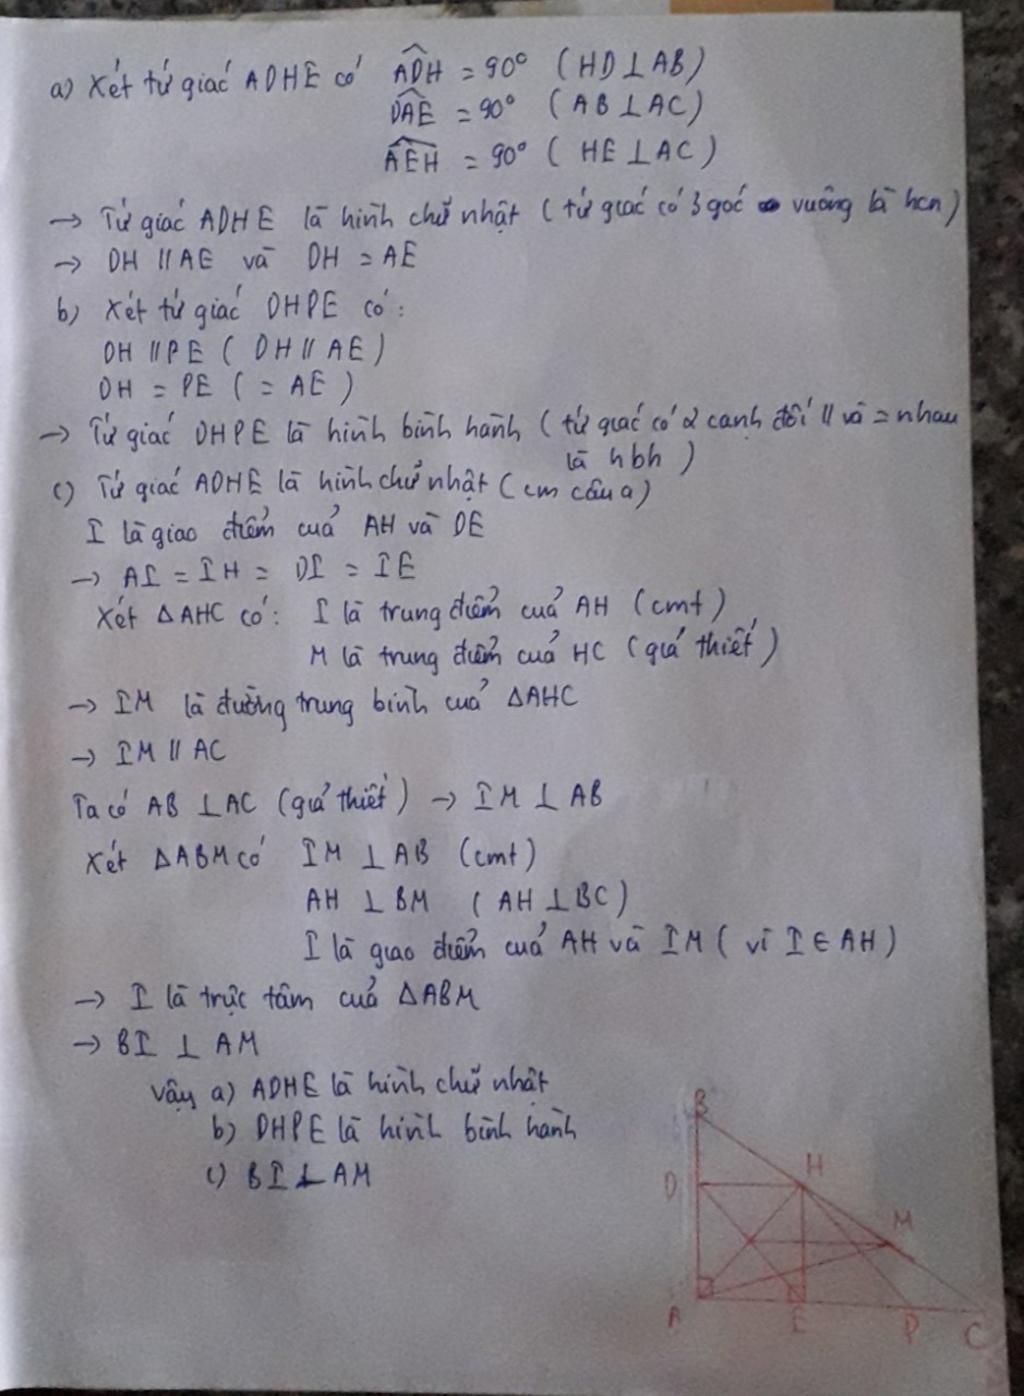 a) Xét tứ giác ADHE có ADH = 90° (HD⊥AB)
DAE = 90° (AB⊥AC)
AEH = 90° (HE⊥AC)
→ Tứ giác ADHE là hình chữ nhật (tứ giác có 3 góc vuông là hcn)
→ DH // AE và DH = AE
b) Xét tứ giác DHPE có:
DH // PE (DH // AE)
DH = PE (= AE)
→ Tứ giác DHPE là hình bình hành (tứ giác có 2 cạnh đối // và = nhau
là hbh)
c) Tứ giác ADHE là hình chữ nhật (cm câu a)
I là giao điểm cuả AH và DE
→ AI = IH = DI = IE
Xét ΔAHC có: I là trung điểm cuả AH (cmt)
M là trung điểm cuả HC (giả thiết)
→ IM là đường trung bình cuả ΔAHC
→ IM // AC
Ta có AB ⊥ AC (giả thiết) → IM ⊥ AB
Xét ΔABM có IM ⊥ AB (cmt)
AH ⊥ BM (AH ⊥ BC)
I là giao điểm cuả AH và IM (vì I ∈ AH)
→ I là trực tâm cuả ΔABM
→ BI ⊥ AM
Vậy a) ADHE là hình chữ nhật
b) DHPE là hình bình hành
c) BI ⊥ AM
B
H
D
M
A
E
P
C